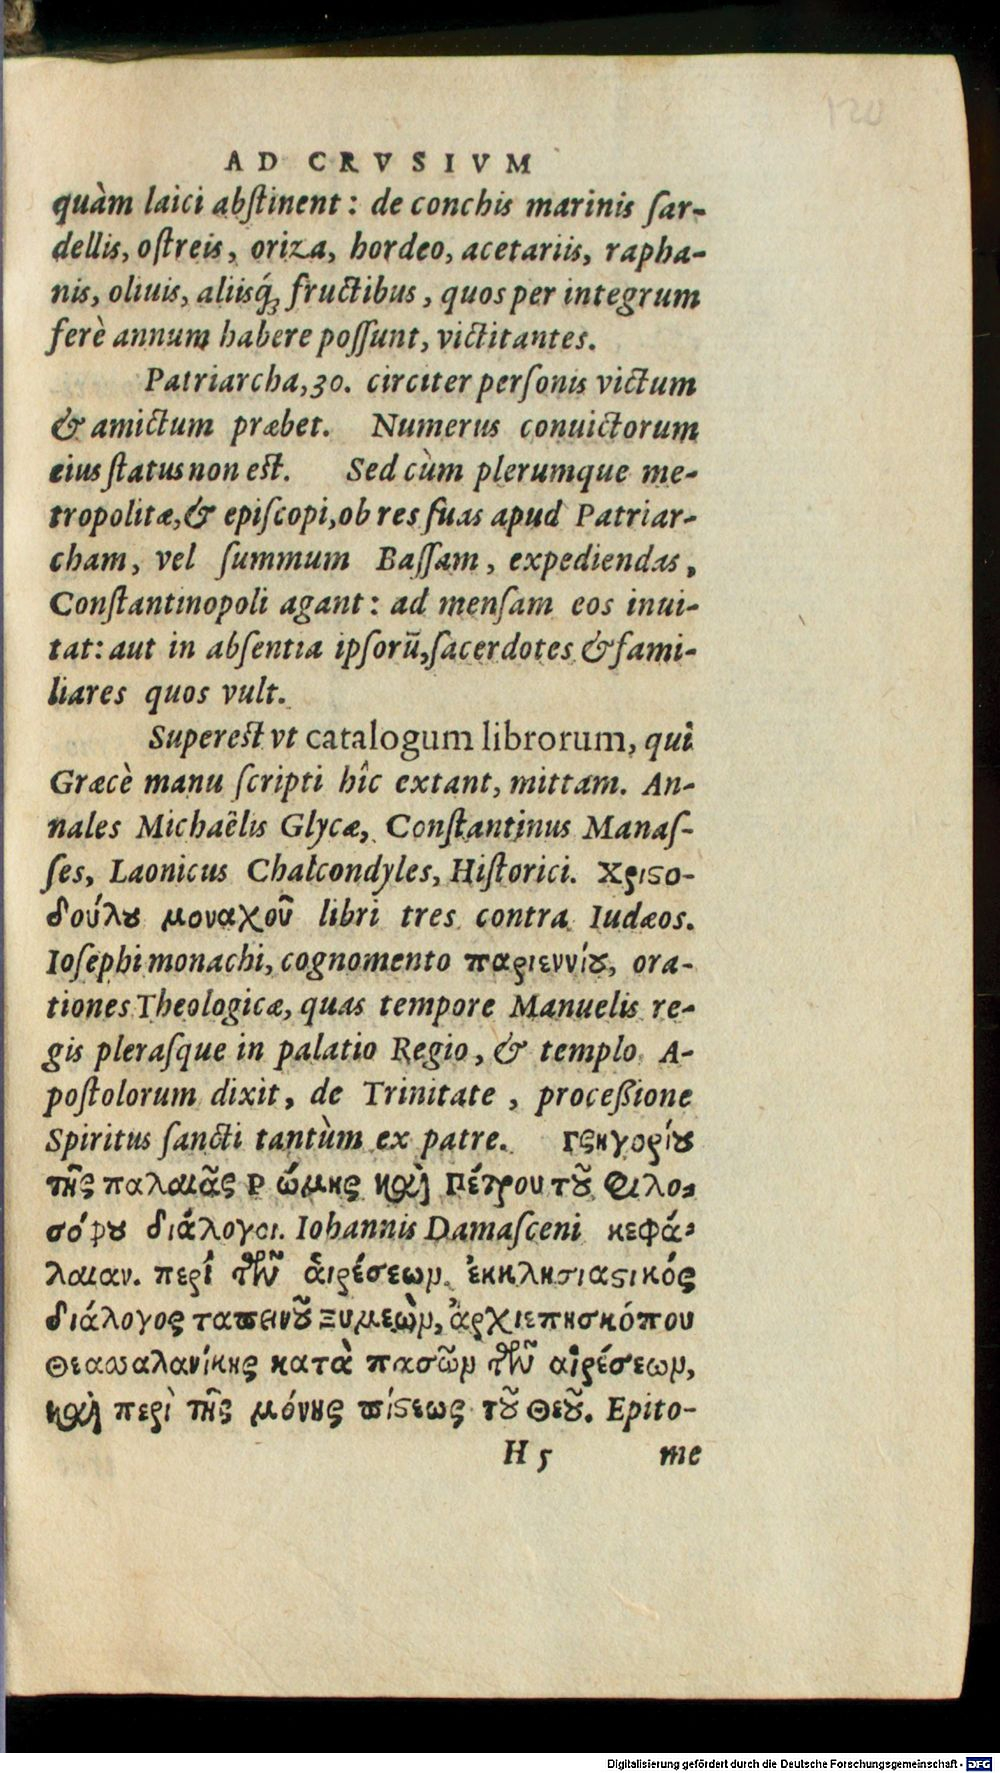 120
AD CRVSIVM
quàm laici abſtinent: de conchis marinis ſar-
dellis, oſtreis, oriza, hordeo, acetariis, rapha-
nis, oliuis, aliisq́ꝫ fructibus, quos per integrum
ferè annum habere poſſunt, victitantes.
Patriarcha, 30. circiter perſonis victum
& amictum præbet. Numerus conuictorum
eius ſtatus non eſt. Sed cùm plerumque me-
tropolitæ, & epiſcopi, ob res ſuas apud Patriar-
cham, vel ſummum Baſſam, expediendas,
Conſtantinopoli agant: ad menſam eos inui-
tat: aut in abſentia ipſorũ, ſacerdotes & fami-
liares quos vult.
Supereſt vt catalogum librorum, qui
Græcè manu ſcripti hîc extant, mittam. An-
nales Michaêlis Glycæ, Conſtantinus Manaſ-
ſes, Laonicus Chalcondyles, Hiſtorici. Χριϛο-
δούλȣ μοναχοῦ libri tres contra Iudæos.
Ioſephi monachi, cognomento παριεννίȣ, ora-
tiones Theologicæ, quas tempore Manuelis re-
gis pleraſque in palatio Regio, & templo A-
poſtolorum dixit, de Trinitate, proceßione
Spiritus ſancti tantùm ex patre. Γρηγορίȣ
τῆς παλαιᾶς Ρ ώμης καὶ Πέτρου τȣ͂ Φιλο-
σόφȣ διάλογοι. Iohannis Damaſceni κεφά-
λαιαν. περὶ τῶν ἁιρέσεων. ἐκκλησιαϛικός
διάλογος ταπεινȣ͂ Ξυμεὼν, ἀρχιεπησκόπου
Θεασαλανίκης κατὰ πασῶν τῶν αἱρέσεων,
καὶ περὶ τῆς μόνης πίϛεως τȣ͂ Θεȣ͂. Epito-
H 5 me
Digitalisierung gefördert durch die Deutsche Forschungsgemeinschaft - DFG